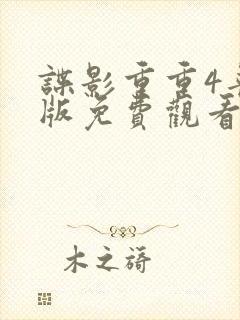 諜影重重4
版免費觀看
木之蒔